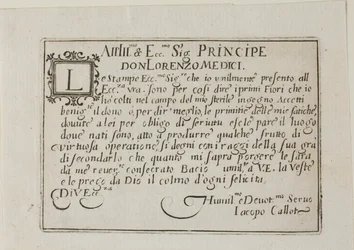 All Ill.mo & Ecc.mo Sig. PRINCIPE
DON LORENZO MEDICI.
Le Stampe Ecc.mo Sig.re che io umilmente presento all
Ecc.za vra. sono per cosi dire i primi Fiori che io
hò colti nel campo del mio sterile ingegno. Accetti
benig.te il dono, ò per dir meglio, le primitie delle mie fatiche,
douute a lei per obligo de seruitu. et se pare il luogo
doue nati sono, atto a produrre qualche frutto di
virtuosa operatione, si degni con i raggi della sua gra
di secondarlo che quanto mi saprà porgere le sarà
da me sempre consecrato. Bacio umil.te a V.E. la Veste
e le prego da Dio il colmo d'ogni felicità.
Di V. Ecc.za
Humiliss.mo e Devot.mo Seruo
Iacopo Callot.